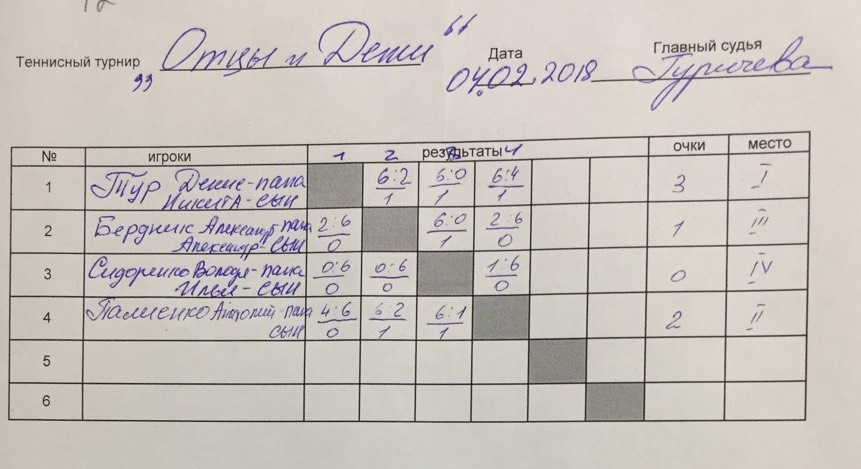 Теннисный турнир „Отцы и Дети“ Дата 04.02.2018 Главный судья
№ игроки 1 2 результаты 4 очки место
1 Тур Денис-папа 6:2 6:0 6:4 3 I
Никита-сын 1 1 1
2 Бердник Александр папа 2:6 6:0 2:6 1 III
Александр-сын 0 1 0
3 Сидоренко Володя-папа 0:6 0:6 1:6 0 IV
Илья-сын 0 0 0
4 Палиенко Анатолий папа 4:6 6:2 6:1 2 II
сын 0 1 1
5
6